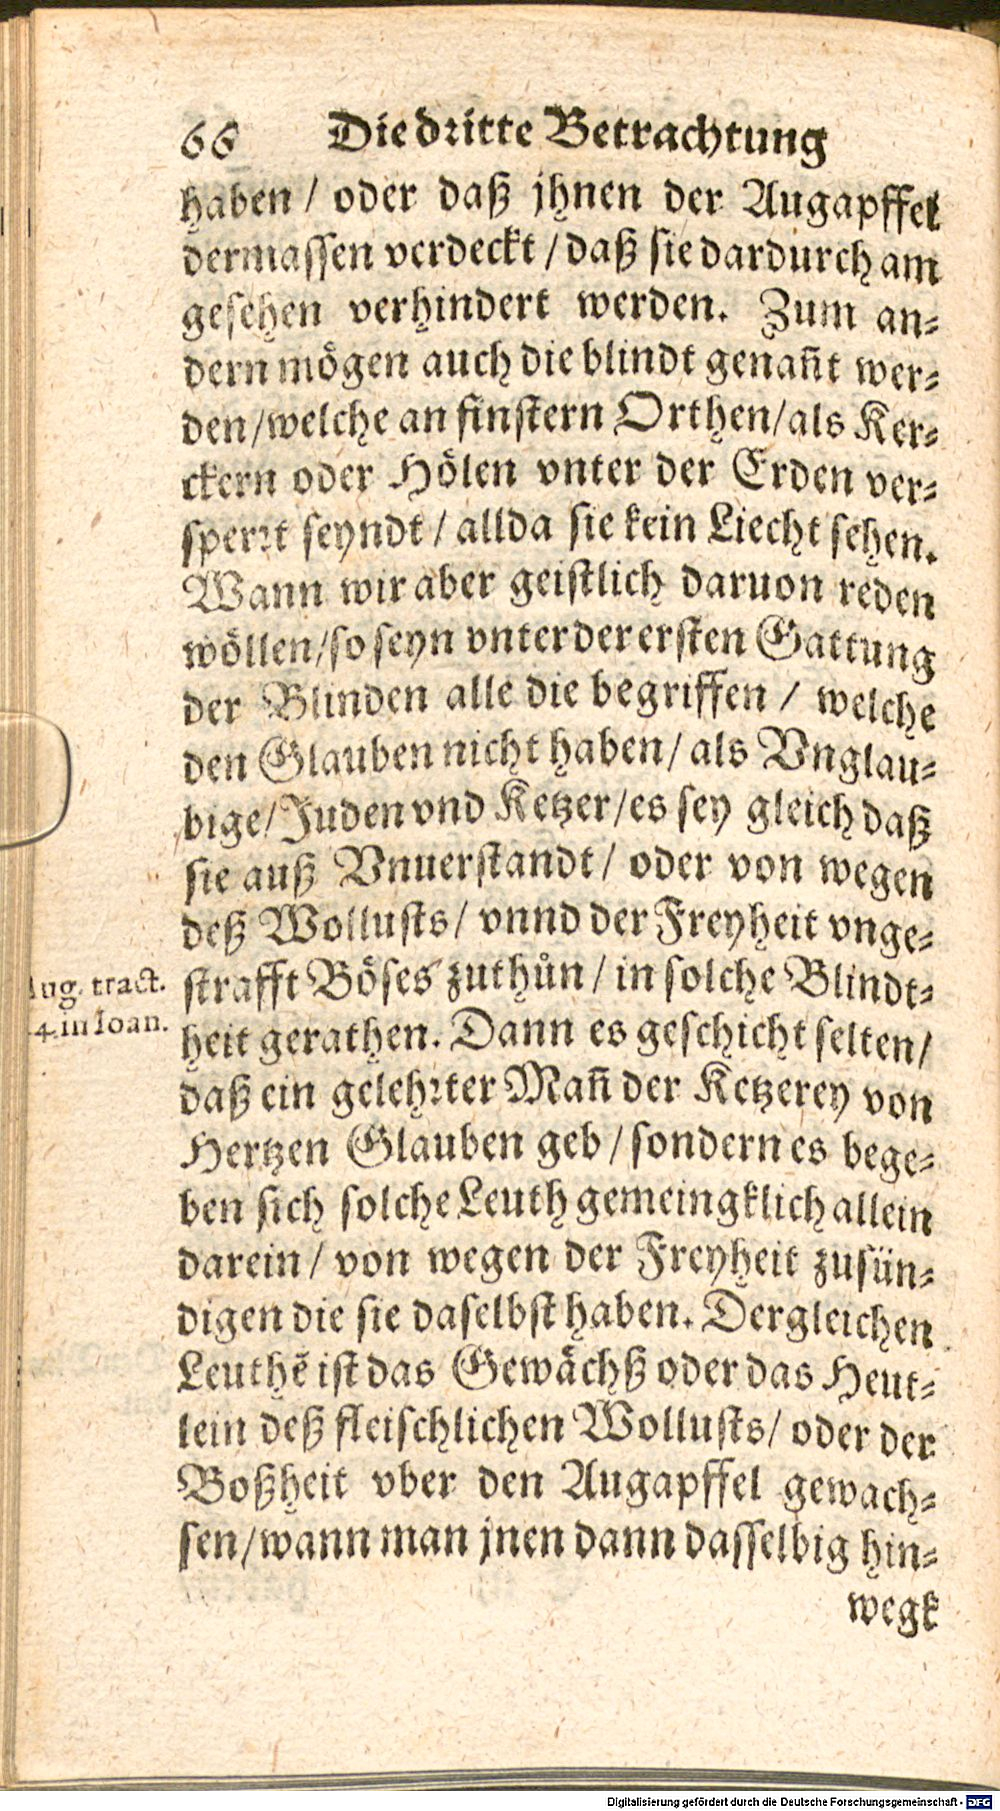 66 Die dritte Betrachtung
haben / oder daß jhnen der Augapffel
dermassen verdeckt / daß sie dardurch am
gesehen verhindert werden. Zum an-
dern mögen auch die blindt genañt wer-
den / welche an finstern Orthen / als Ker-
ckern oder Hölen vnter der Erden ver-
sperrt seyndt / allda sie kein Liecht sehen.
Wann wir aber geistlich daruon reden
wöllen / so seyn vnter der ersten Gattung
der Blinden alle die begriffen / welche
den Glauben nicht haben / als Vnglau-
bige / Juden vnd Ketzer / es sey gleich daß
sie auß Vnuerstandt / oder von wegen
deß Wollusts / vnnd der Freyheit vnge-
strafft Böses zuthůn / in solche Blindt-
heit gerathen. Dann es geschicht selten /
daß ein gelehrter Mañ der Ketzerey von
Hertzen Glauben geb / sondern es bege-
ben sich solche Leuth gemeingklich allein
darein / von wegen der Freyheit zusün-
digen die sie daselbst haben. Dergleichen
Leuthẽ ist das Gewächß oder das Heut-
lein deß fleischlichen Wollusts / oder der
Boßheit vber den Augapffel gewach-
sen / wann man jnen dann dasselbig hin-
wegk
Aug. tract.
4. in Ioan.
Digitalisierung gefördert durch die Deutsche Forschungsgemeinschaft - DFG